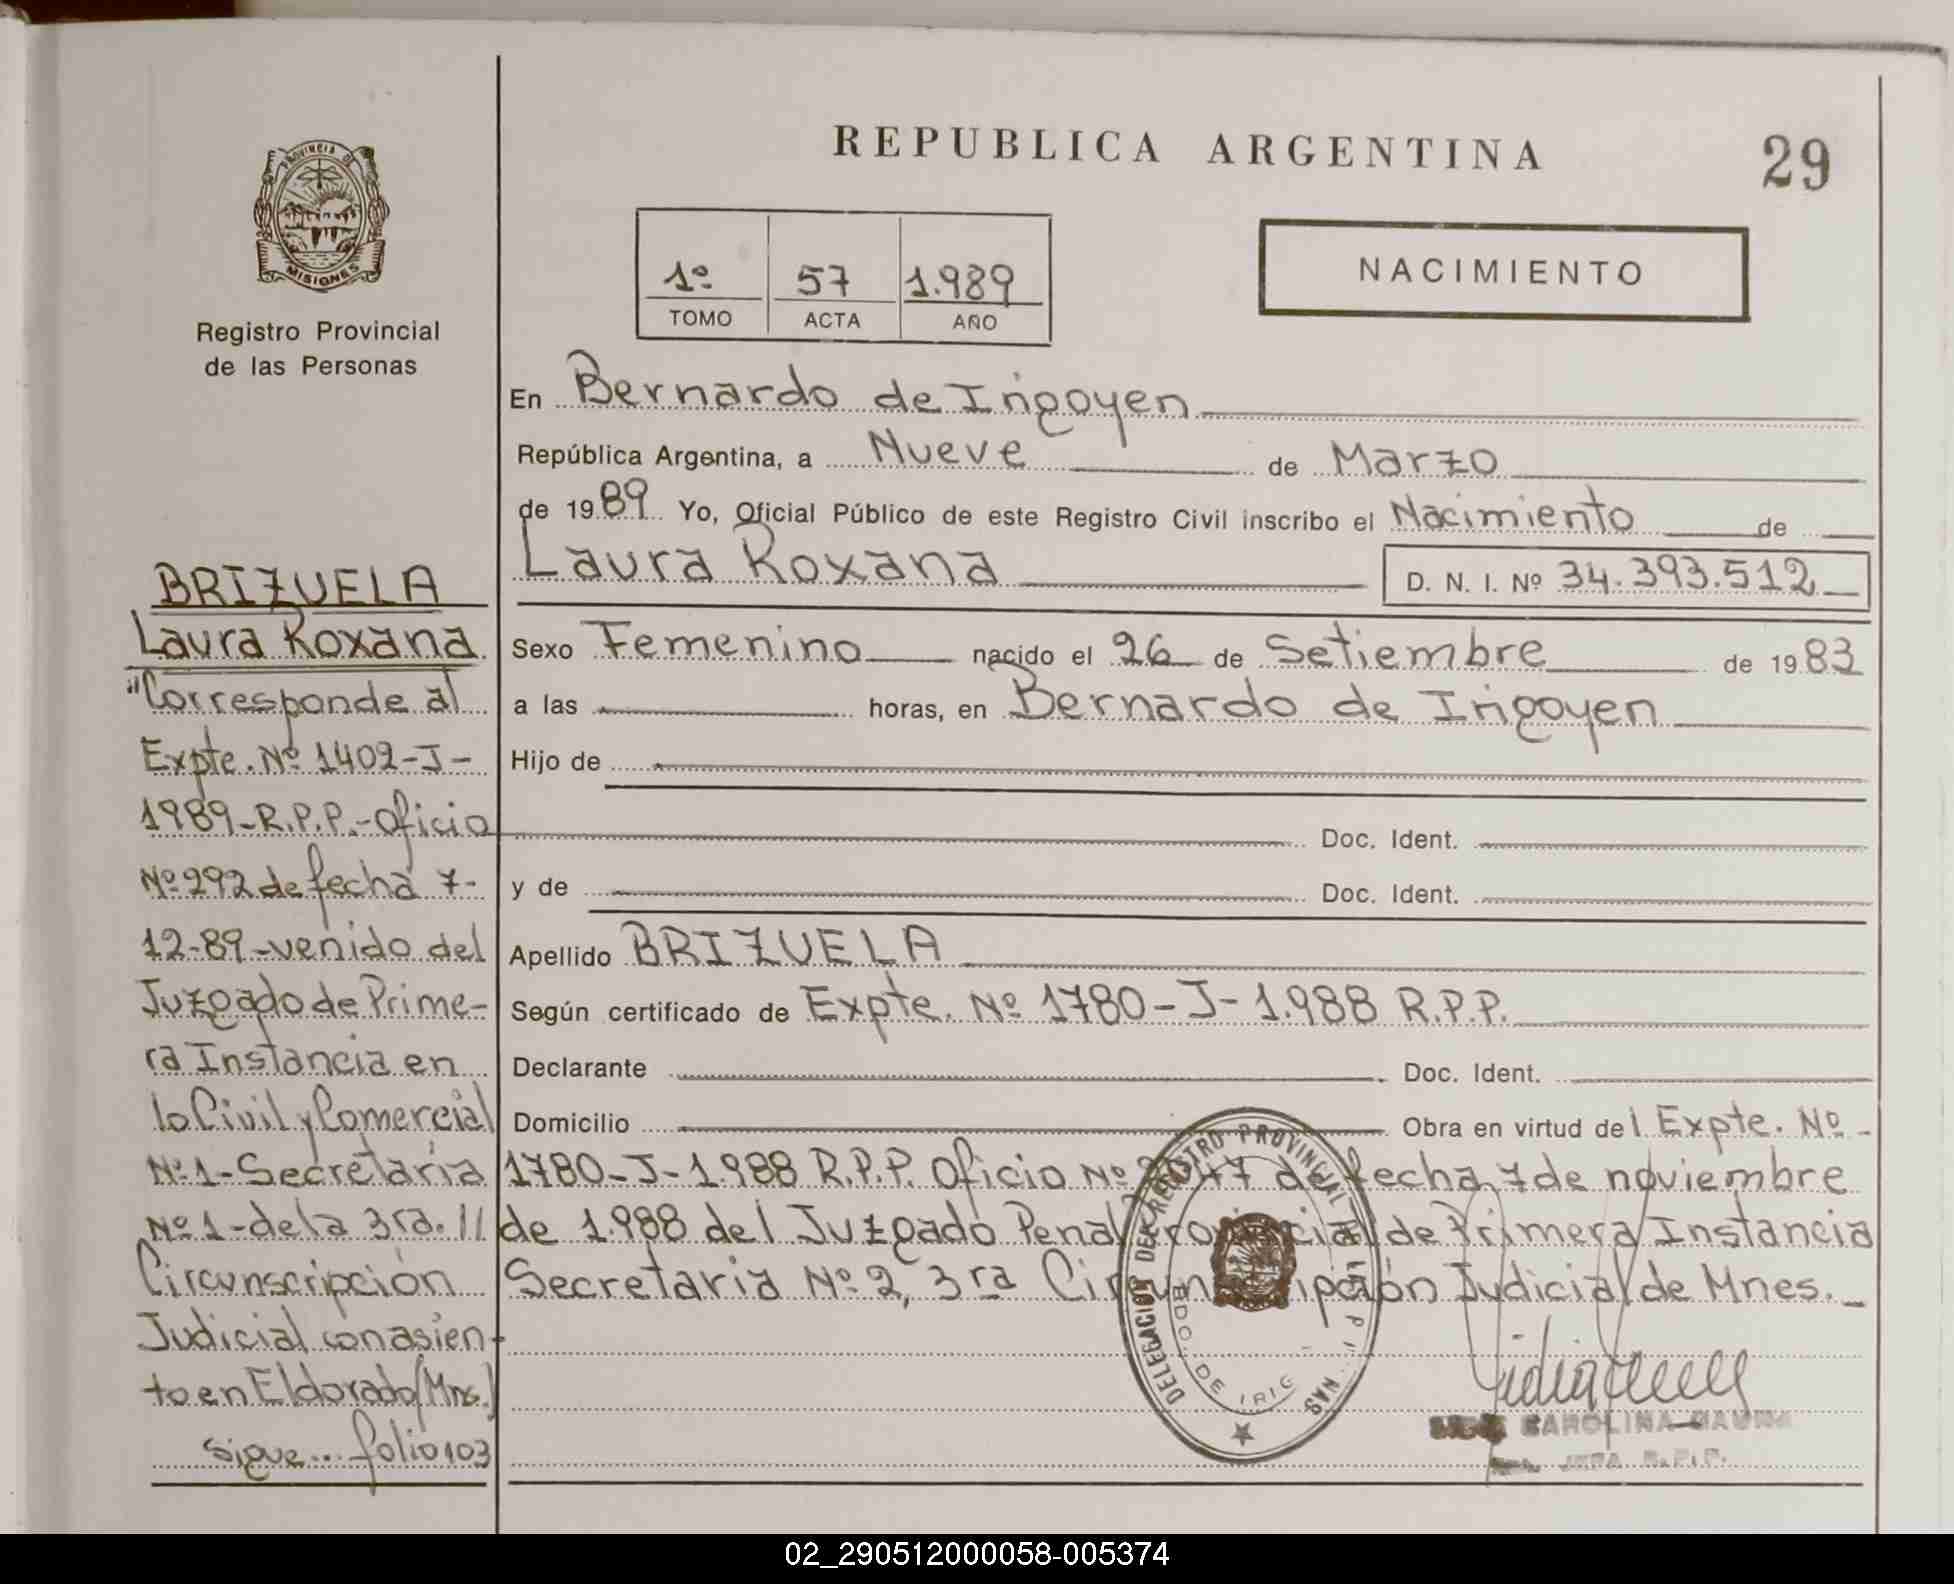 REPUBLICA ARGENTINA
29
PROVINCIA DE
MISIONES
Registro Provincial
de las Personas
1º 57 1.989
TOMO ACTA AÑO
NACIMIENTO
En Bernardo de Irigoyen
República Argentina, a Nueve de Marzo
de 1989 Yo, Oficial Público de este Registro Civil inscribo el Nacimiento de
Laura Roxana D. N. I. Nº 34.393.512
Sexo Femenino nacido el 26 de Setiembre de 1983
a las horas, en Bernardo de Irigoyen
Hijo de
Doc. Ident.
y de Doc. Ident.
Apellido BRIZUELA
Según certificado de Expte. Nº 1780-J-1.988 R.P.P.
Declarante Doc. Ident.
Domicilio Obra en virtud del Expte. Nº
1780-J-1.988 R.P.P. Oficio Nº de fecha 7 de noviembre
de 1.988 del Juzgado Penal Provincial de Primera Instancia
Secretaria Nº 2, 3ra Circunscripción Judicial de Mnes.
BRIZUELA
Laura Roxana
"Corresponde al
Expte. Nº 1402-J-
1989-R.P.P.-Oficio
Nº 292 de fecha 7-
12-89-venido del
Juzgado de Prime-
ra Instancia en
lo Civil y Comercial
Nº 1-Secretaría
Nº 1-de la 3ra. //
Circunscripción
Judicial con asien-
to en Eldorado (Mns.)
sigue... folio 103
DELEGACION DEL REGISTRO PROVINCIAL
BDO. DE IRIG
CAROLINA
JEFA R.P.P.
02_290512000058-005374